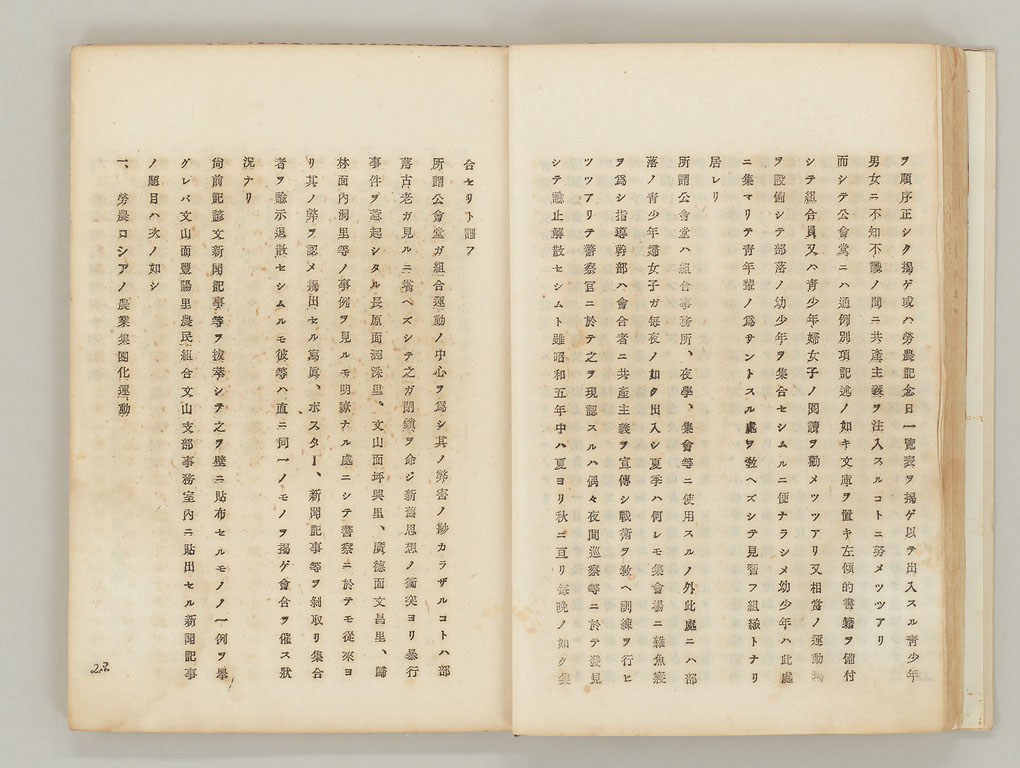 ヲ順序正シク揭ゲ或ハ勞農記念日一覽表ヲ揭ゲ以テ出入スル靑少年
男女ニ不知不識ノ間ニ共產主義ヲ注入スルコトニ努メツツアリ
而シテ公會堂ニハ通例別項記述ノ如キ文庫ヲ置キ左傾的書籍ヲ備付
シテ組合員又ハ靑少年婦女子ノ閱讀ヲ勸メツツアリ又相當ノ運動場
ヲ設備シテ部落ノ幼少年ヲ集合セシムルニ便ナラシメ幼少年ハ此處
ニ集マリテ靑年輩ノ爲サントスル處ヲ敎ヘズシテ見習フ組織トナリ
居レリ
所謂公會堂ハ組合事務所、夜學、集會等ニ使用スルノ外此處ニハ部
落ノ靑少年婦女子ガ每夜ノ如ク出入シ夏季ハ何レモ集會場ニ雜魚寢
ヲ爲シ指導幹部ハ會合者ニ共產主義ヲ宣傳シ戰術ヲ敎ヘ訓練ヲ行ヒ
ツツアリテ警察官ニ於テ之ヲ現認スルハ偶々夜間巡察等ニ於テ發見
シテ諭止解散セシムト雖昭和五年中ハ夏ヨリ秋ニ亘リ每晩ノ如ク集
合セリト謂フ
所謂公會堂ガ組合運動ノ中心ヲ爲シ其ノ弊害ノ尠カラザルコトハ部
落古老ガ見ルニ堪ヘズシテ之ガ閉鎖ヲ命ジ新舊思想ノ衝突ヨリ暴行
事件ヲ惹起シタル長原面認洙里、文山面坪興里、廣德面文昌里、歸
林面內洞里等ノ事例ヲ見ルモ明瞭ナル處ニシテ警察ニ於テモ從來ヨ
リ其ノ弊ヲ認メ揭出セル寫眞、ポスター、新聞記事等ヲ剝取リ集合
者ヲ諭示退散セシムルモ彼等ハ直ニ同一ノモノヲ揭ゲ會合ヲ催ス狀
況ナリ
尙前記諺文新聞記事等ヲ拔萃シテ之ヲ壁ニ貼布セルモノノ一例ヲ擧
グレバ文山面豐陽里農民組合文山支部事務室內ニ貼出セル新聞記事
ノ題目ハ次ノ如シ
一、勞農ロシアノ農業集團化運動